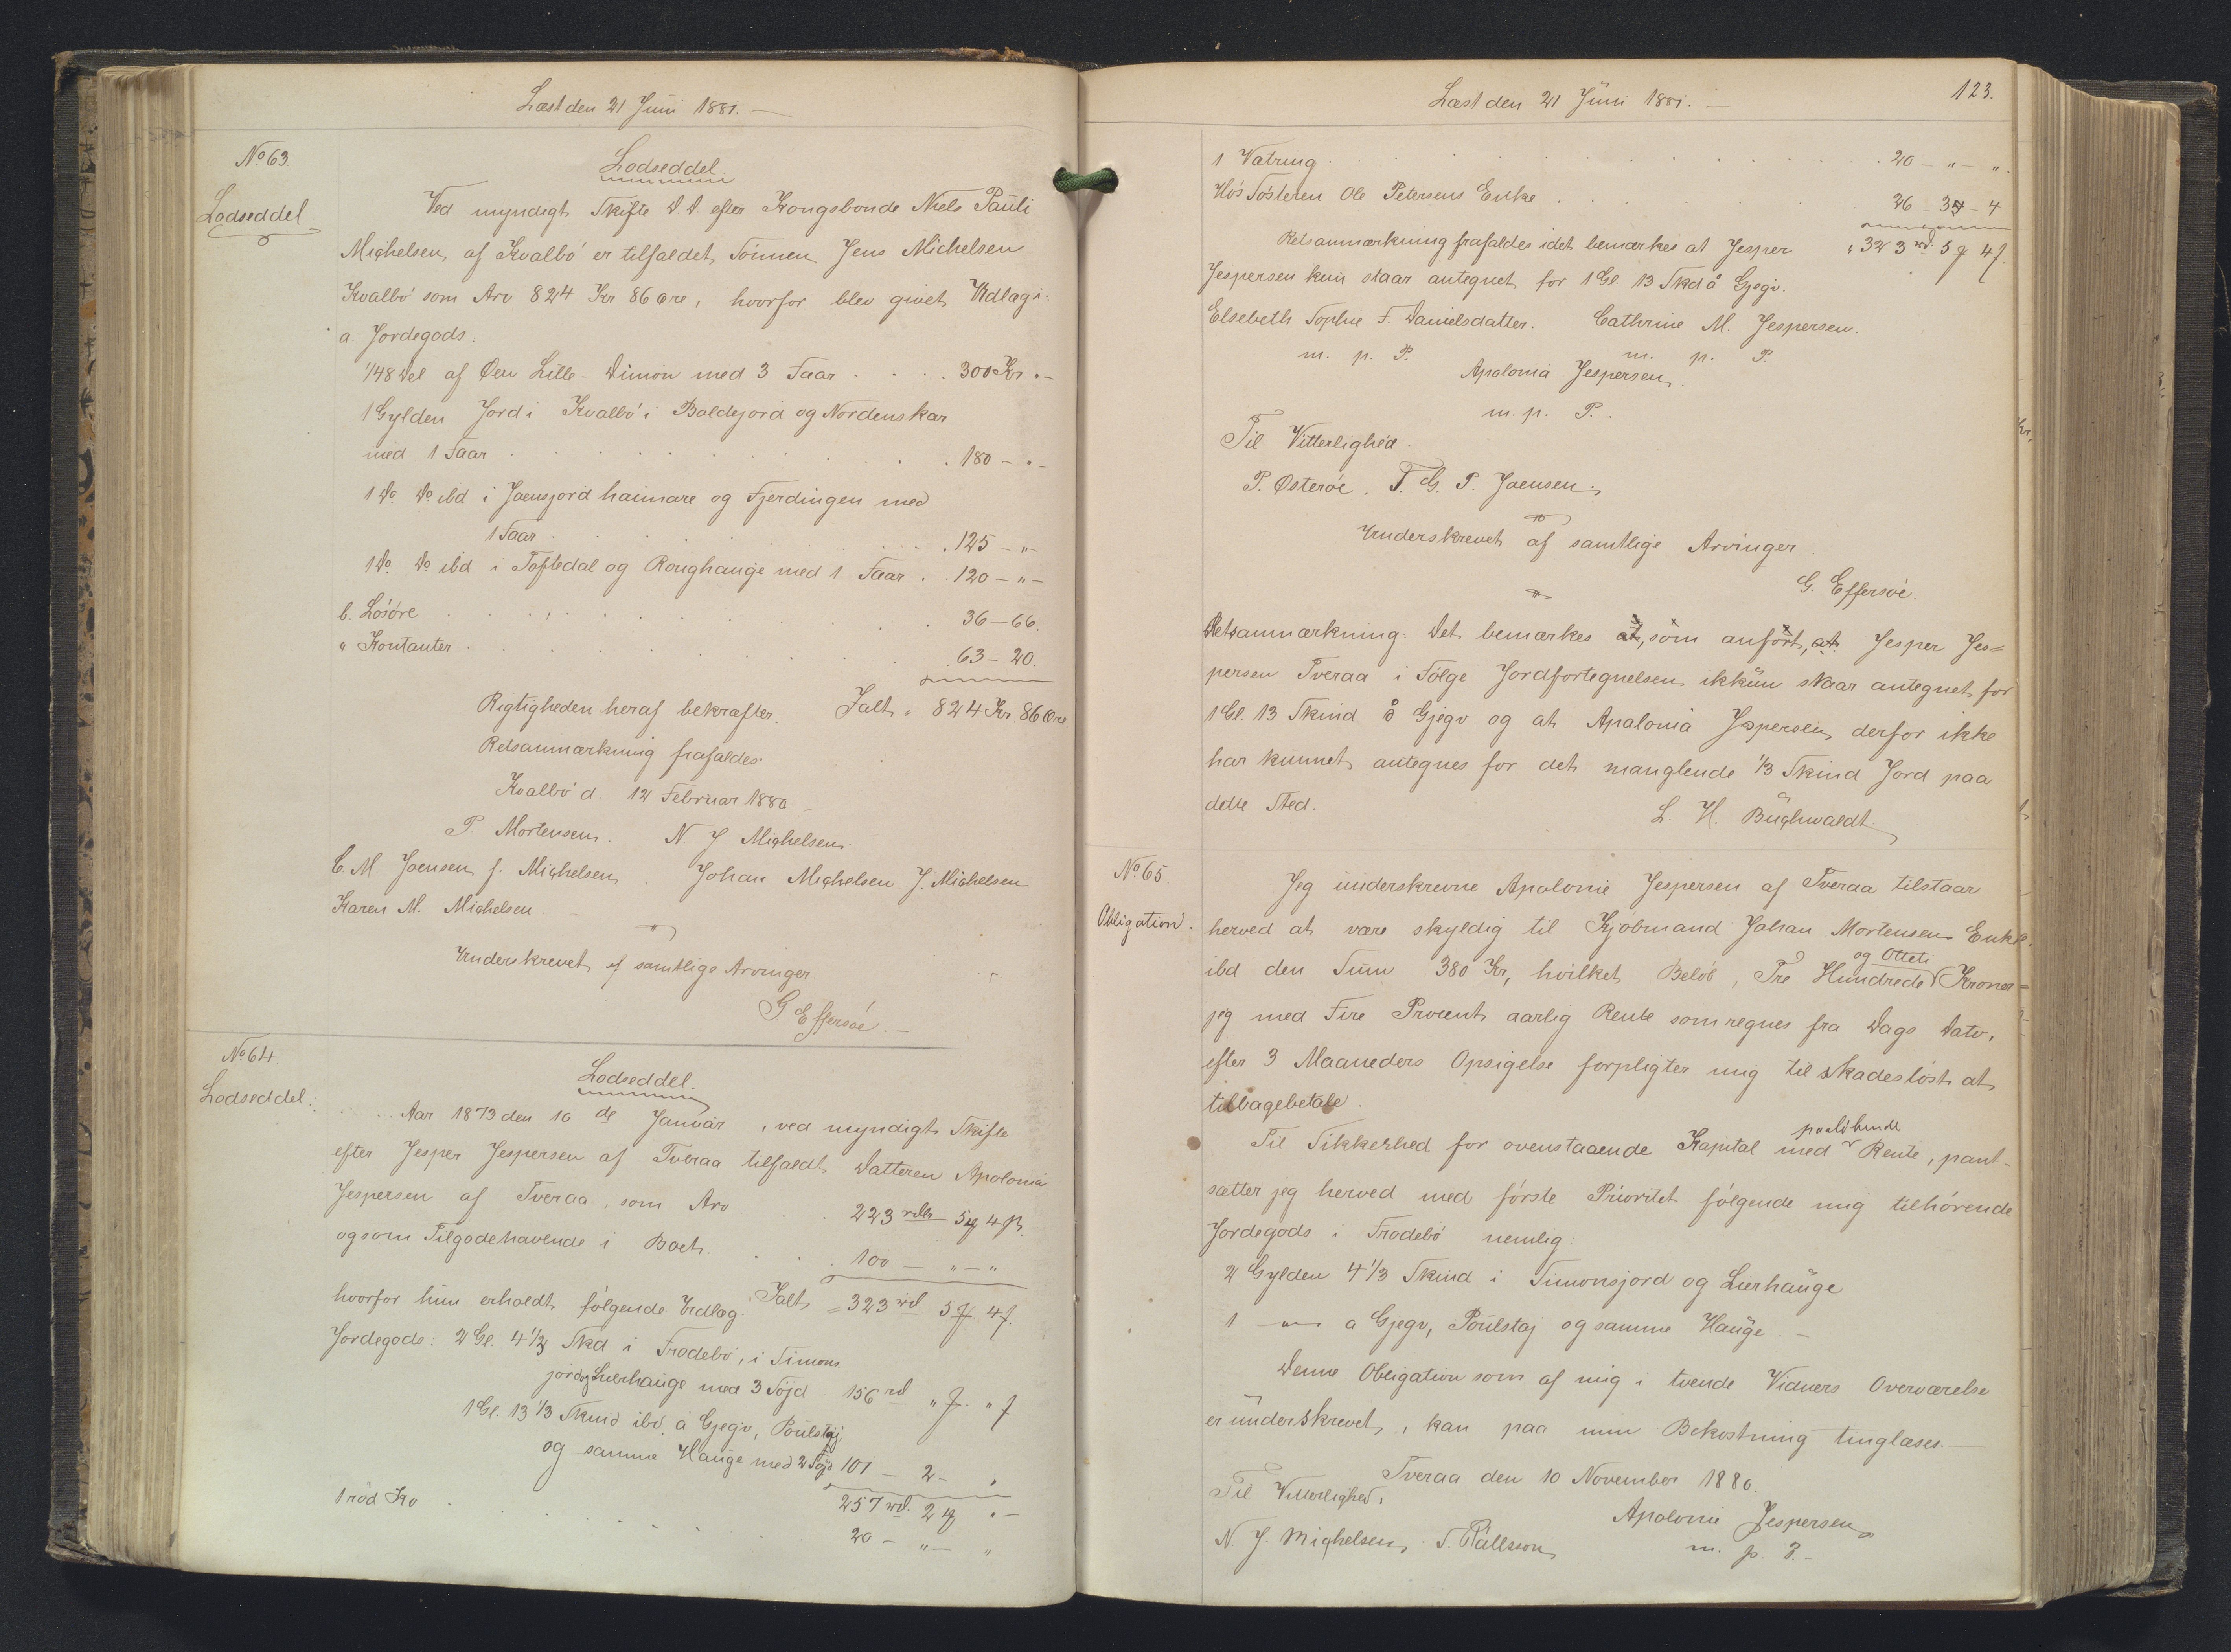 Læst den 21 Juni 1881. —
No 63.
Lodseddel
Lodseddel
Ved myndigt Skifte D.D efter Kongsbonde Niels Pauli
Michelsen af Kvalbö er tilfaldet Sönnen Jens Michelsen
Kvalbö som Arv 824 Kr 86 Øre, hvorfor blev givet Udlæg i:
a. Jordegods:
1/48 Del af Øen Lille-Dimon med 3 Faar . . . . 300 Kr. " -
1 Gylden Jord i Kvalbö i Baldejord og Nordenskar
med 1 Faar . . . . 180 - " -
1 Do Do ibd i Joensjord haimare og Fjerdingen med
1 Faar . . . . 125 - " -
1 Do Do ibd i Toftedal og Ronghauge med 1 Faar . . 120 - " -
b. Lösöre . . . . 36 - 66.
" Kontanter . . . . 63 - 20.
Rigtigheden heraf bekræfter. Ialt " 824 Kr. 86 Øre.
Retsanmærkning frafaldes.
Kvalbö d. 12 Februar 1880 -
P. Mortensen. N. J. Michelsen
C. M. Joensen f. Michelsen. Johan Michelsen J. Michelsen
Karen M. Michelsen. -
Underskrevet af samtlige Arvinger.
G Effersöe. -
No 64.
Lodseddel.
Lodseddel.
Aar 1873 den 10 de Januar, ved myndigt Skifte
efter Jesper Jespersen af Tveraa tilfaldt Datteren Apolonia
Jespersen af Tveraa, som Arv . . 223 rdlr 5 ꝶ 4 ß.
og som Tilgodehavende i Boet . . . 100 - " - "
Ialt = 323 rd. 5 ꝶ 4 ß.
hvorfor hun erholdt følgende Udlæg:
Jordegods: 2 Gl. 4 1/3 Skd i Frodebö, i Simons
jord og Lierhauge med 3 Söjd 156 rd " ꝶ. " ß
1 Gl. 13 1/3 Skind ibd. a Gjegv, Poulstøj
og samme Hauge med 2 Söjd 101 - 2 - "
257 rd. 2 ꝶ " -
1 röd Ko . . . . 20 - " - "
Læst den 21 Juni 1881. —
123.
1 Vatring . . . . 20 - " - "
Hos Sösteren Ole Petersens Enke . . . . 26 - 3 - 4
" 323 rd. 5 ꝶ 4 ß.
Retsanmærkning frafaldes idet bemærkes at Jesper
Jespersen kun staar antegnet for 1 Gl. 13 Skd å Gjegv.
Elsebeth Sophie F. Danielsdatter. Cathrine M. Jespersen.
m. p. P. m. p. P.
Apolonia Jespersen.
m. p. P.
Til Vitterlighed
P. Østeröe. T. G. P. Joensen.
Underskrevet af samtlige Arvinger.
G. Effersöe.
Retsanmærkning: Det bemærkes at, som anført, at Jesper Jes=
persen Tveraa i Fölge Jordfortegnelsen ikkun staar antegnet for
1 Gl. 13 Skind å Gjegv og at Apalonia Jespersen derfor ikke
har kunnet antegnes for det manglende 1/3 Skind Jord paa
dette Sted.
L. H. Buchwaldt
No 65.
Obligation.
Jeg underskrevne Apolonie Jespersen af Tveraa tilstaar
herved at være skyldig til Kjöbmand Johan Mortensens Enke
og Otteti
ibd den Sum 380 Kr, hvilket Belöb, Tre Hundrede Kroner
jeg med Fire Procent aarlig Rente som regnes fra Dags Dato,
efter 3 Maaneders Opsigelse forpligter mig til skadeslöst at
tilbagebetale.
paalöbende
Til Sikkerhed for ovenstaaende Kapital med Rente, pant-
sætter jeg herved med förste Prioritet fölgende mig tilhörende
Jordegods i Frodebö nemlig:
2 Gylden 4 1/3 Skind i Simonsjord og Lierhauge
1 — " — a Gjegv, Poulstøj og samme Hauge. -
Denne Obligation som af mig i tvende Vidners Overværelse
er underskrevet, kan paa min Bekostning tinglæses. -
Tveraa den 10 November 1880.
Til Vitterlighed.
Apolonie Jespersen
N. J. Michelsen. S. Pállsson
m. p. P. -